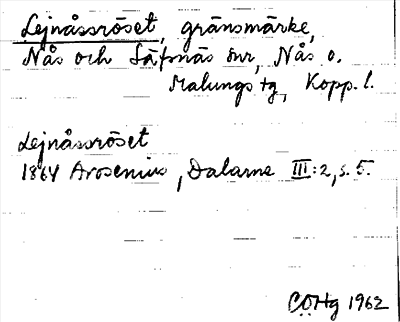 Lejnåssröset, gränsmärke,
Nås och Säfsnäs snr, Nås o.
Malungs tg, Kopp. l.
Lejnåssröset
1864 Arosenius, Dalarne III:2, s. 5.
COHg 1962